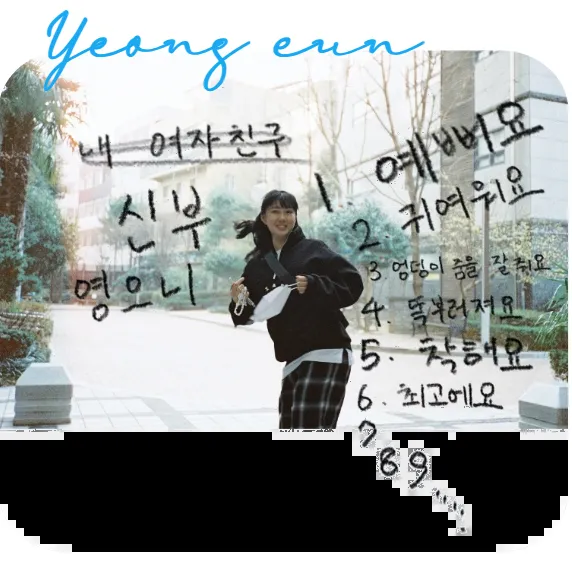 Yeong eun
내 여자친구
신부
영으니
1. 예뻐요
2. 귀여워요
3 엉덩이 춤을 잘춰요
4. 똑부러져요
5. 착해요
6. 최고에요
7
8 9 .....